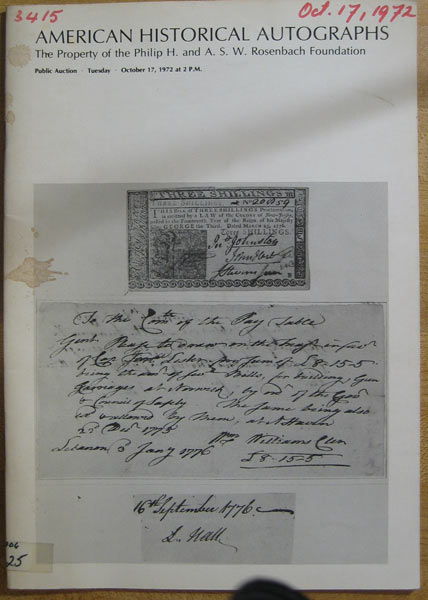 3415
Oct. 17, 1972
AMERICAN HISTORICAL AUTOGRAPHS
The Property of the Philip H. and A. S. W. Rosenbach Foundation
Public Auction · Tuesday · October 17, 1972 at 2 P.M.
THREE SHILLINGS
THREE SHILLINGS No 20059
THIS Bill of THREE SHILLINGS Proclamation,
is emitted by a LAW of the Colony of New-Jersey,
passed in the Fourteenth Year of the Reign of his Majesty
King GEORGE the Third. Dated March 25, 1776.
Three SHILLINGS.
To the Comtt of the Pay Table
Gent. Please to draw on the
of Capt sum of £8-15-5
being the amt of Bills, for building Gun
Carriages at Norwich, by of the Gov
& Council of Safety The same being also
allowed by them, at N Haven
Decr 1775 Wm Williams Clerk
Lebanon 3 Jany 1776 £8-15-5
16th September 1776
L. Hall
25